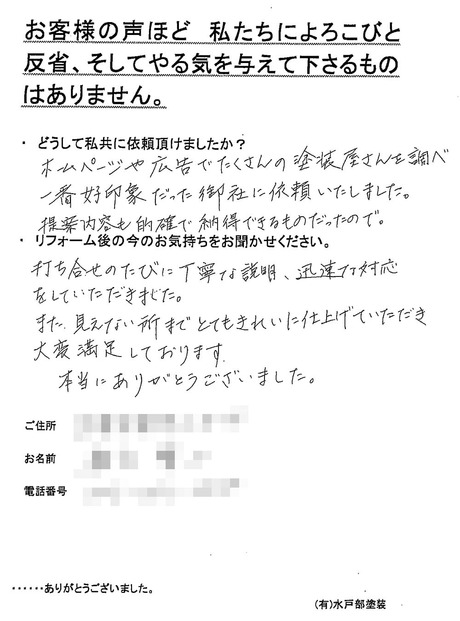 お客様の声ほど　私たちによろこびと
反省、そしてやる気を与えて下さるもの
はありません。
・ どうして私共に依頼頂けましたか？
ホームページや広告でたくさんの塗装屋さんを調べ
一番好印象だった御社に依頼いたしました。
提案内容も的確で納得できるものだったので。
・ リフォーム後の今のお気持ちをお聞かせください。
打ち合せのたびに丁寧な説明、迅速な対応
をしていただきました。
また、見えない所までとてもきれいに仕上げていただき
大変満足しております。
本当にありがとうございました。
ご住所
お名前
電話番号
・・・・・・ありがとうございました。
(有)水戸部塗装